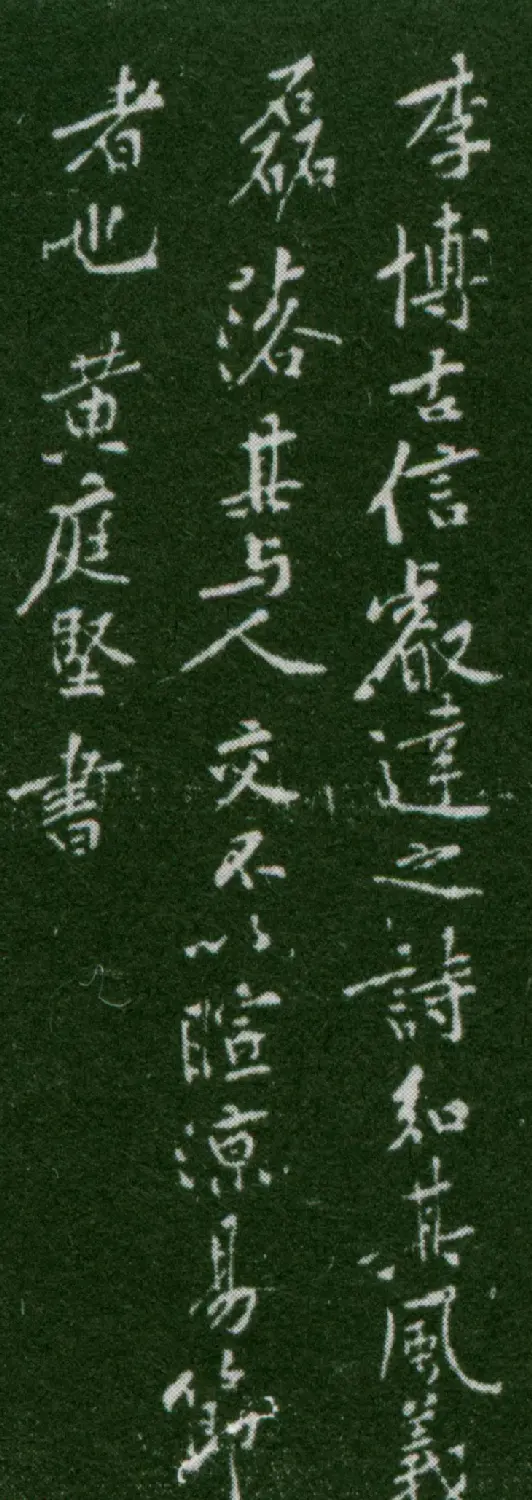 李博古信叡達之詩知其風義
磊落其与人交不以暄涼易節
者也黄庭堅書